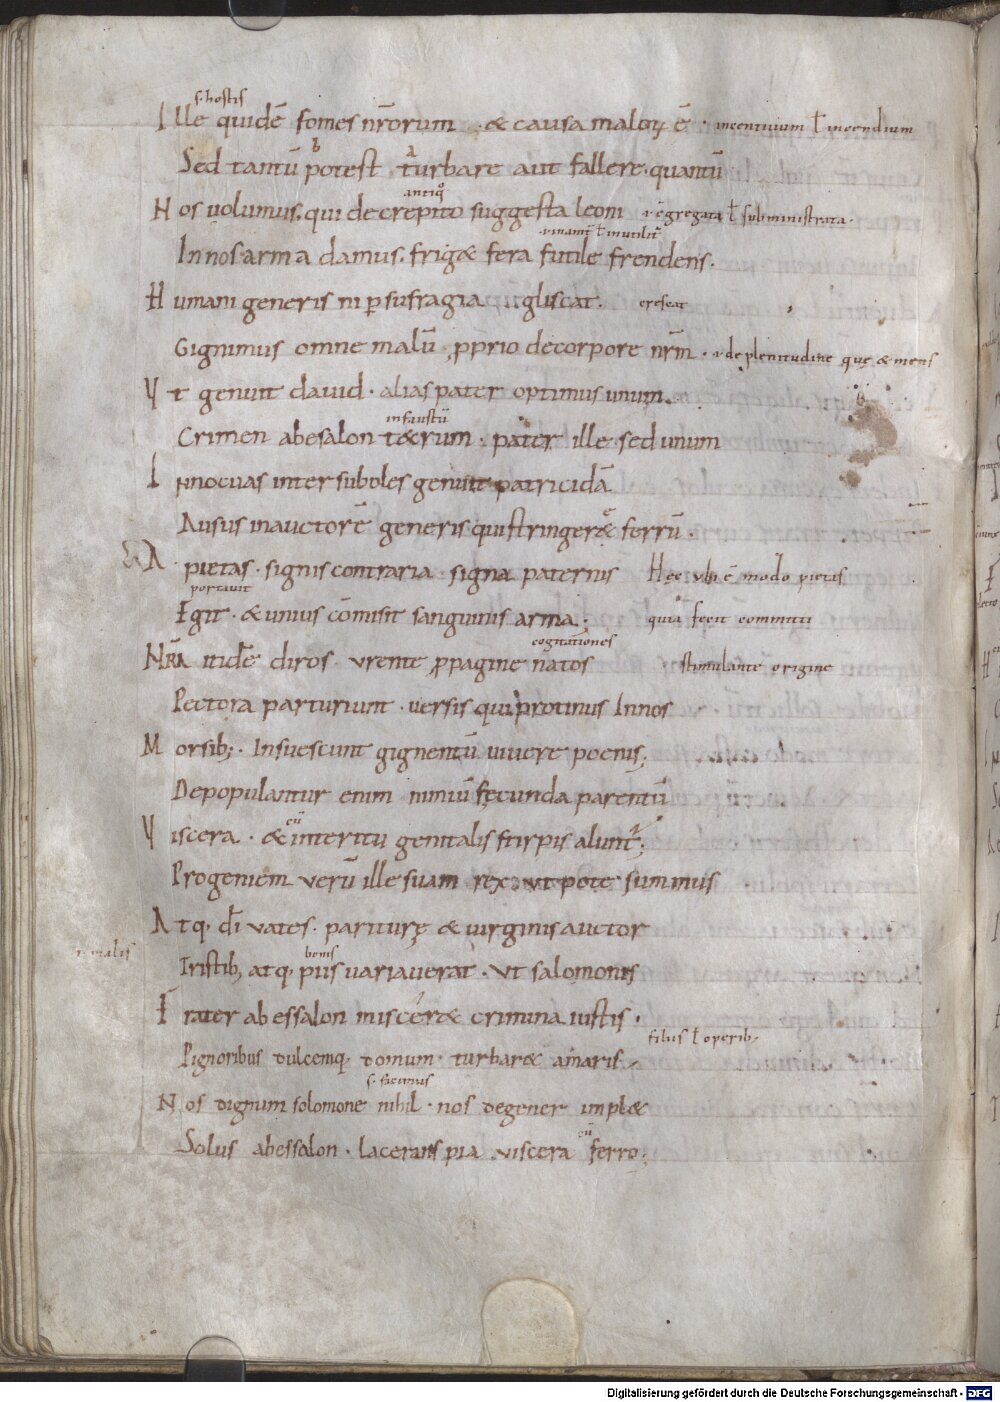 s. hostis
Ille quidē fomes nr̄orum · & causa maloꝝ ē · incentiuum ł incendium
b a
Sed tantū potest turbare aut fallere · quantū
antiqͦ
Nos uolumus · qui decrepito suggesta leoni · i· ēgregata ł subministrata ·
· i· inanit̄ ł inutilit̄
In nos arma damus · frig& fera futile frendens ·
Humani generis ni ꝑ sufragia gliscat · crescat
Gignimus omne malū ꝓprio de corpore nr̄m · i· de plenitudine quę & mens
Vt genuit dauid · alias pater optimus unum
infaustū
Crimen abesalon t&rum · pater ille · sed unum
Innocuas inter suboles genuit patricidā
Ausus in auctorē generis qui stringer& ferrū ·
A pietas · signis contraria signa paternis Hęc ubi ē modo pietis
portauit
Egit · & unius cōmisit sanguinis arma ; quia fecit committi
cogitationes
Nr̄a itidē diros vrente ꝓpagine natos stimulante origine
Pectora parturiunt · uersis qui protinus In nos
Morsib; · Insuescunt gignentū uiuere poenis ;
Depopulantur enim nimiū fecunda parentū
cū
Viscera · & interitu genitalis stirpis alunt̄ ;
Progeniem verū ille suam rex vt pote summus
Atq; dī vates · pariturę & uirginis auctor
i· malis bonis
Tristib; atq; piis uariauerat · vt salomonis
Frater abessalon miscer& crimina iustis ·
filiis ł operib;
Pignoribus dulcemq; domum turbar& amaris
s· facimus
Nos dignum solomone nihil · nos degener impl&
cū
Solus abessalon · lacerans pia viscera ferro ;
Digitalisierung gefördert durch die Deutsche Forschungsgemeinschaft - DFG